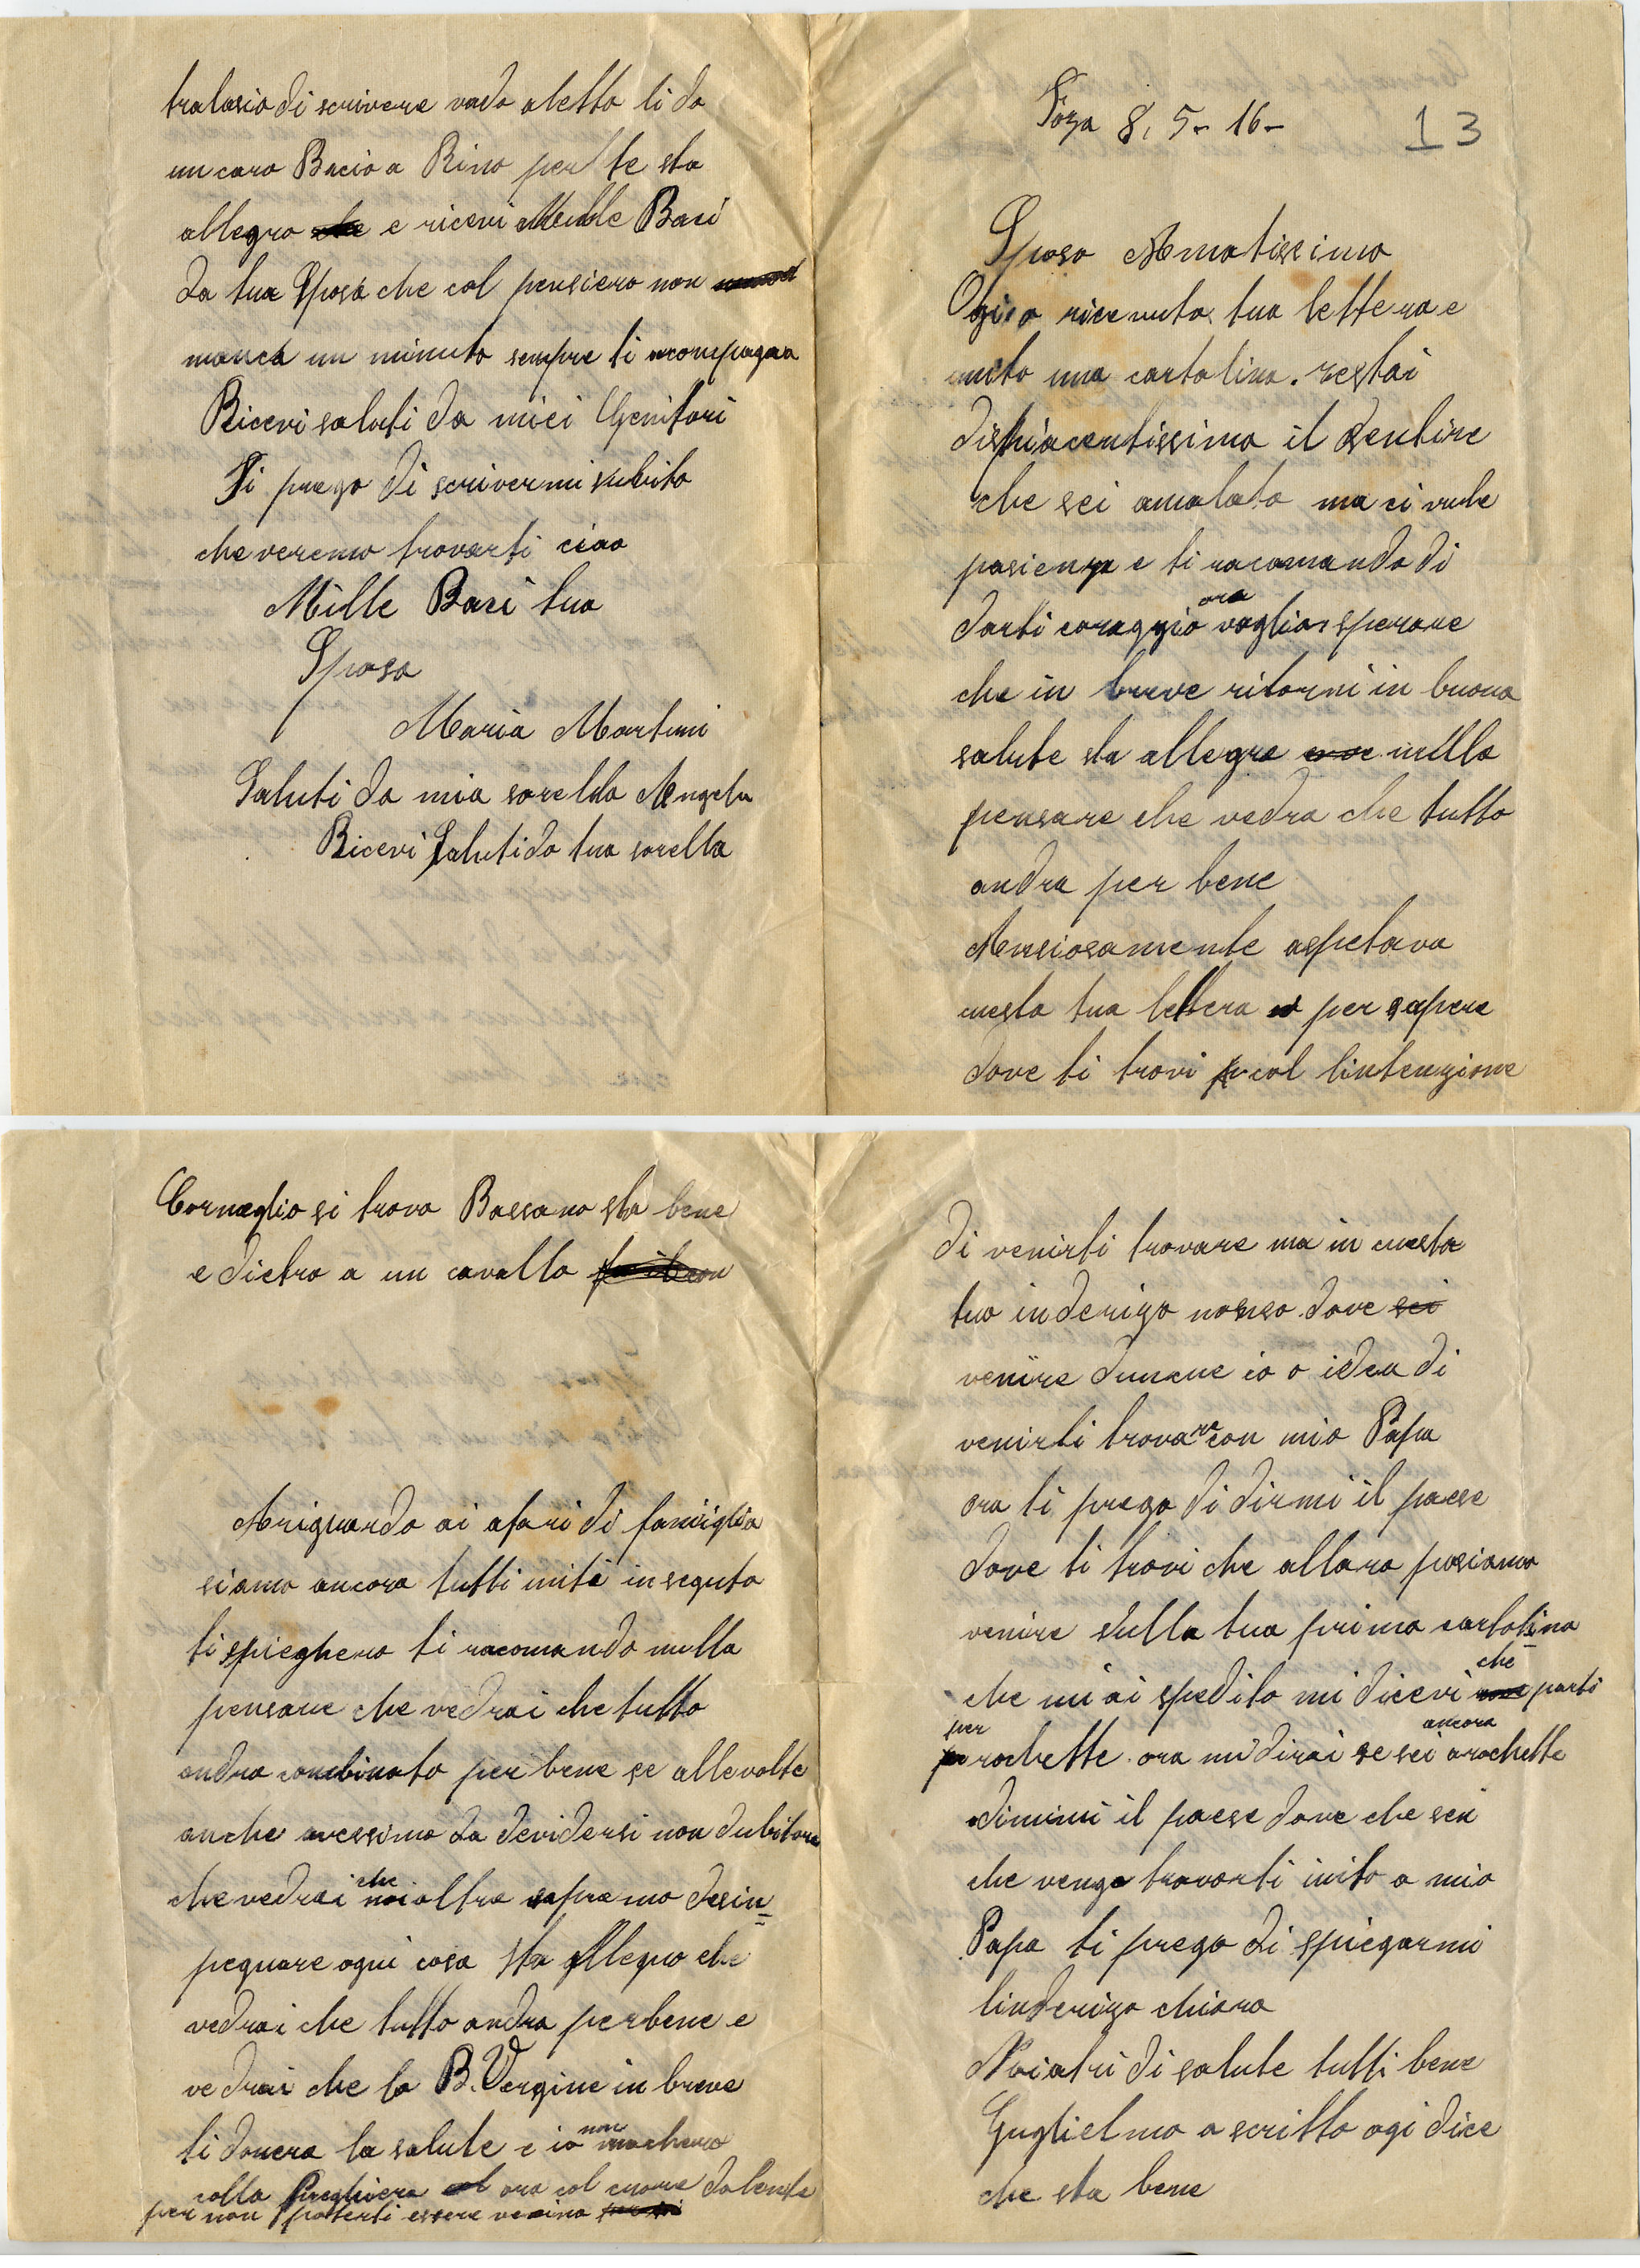 Foza 8, 5- 16-
13
Sposo Amatissimo
Ogi o ricevuta tua lettera e
unito una cartolina. restai
dispiacentissima il sentire
che sei amalato ma ci vule
pasienza e ti racomando di
darti coraggio ora voglio sperare
che in breve ritorni in buona
salute sta allegro nulla
pensare che vedra che tutto
andra per bene
Ansiosamente aspetava
cuesta tua lettera per sapere
dove ti trovi col lintenzione
di venirti trovare ma in cuesta
tuo inderizo nonso dove sei
venire duncue io o idea di
venirti trovare con mio Papa
ora ti prego di dirmi il paese
dove ti trovi che allora posiamo
venire sulla tua prima cartolina
che mi ai spedito mi dicevi che parti
per rochette. ora mi dirai se sei ancora arochette
dimmi il paese dove che sei
che venga trovarti unito a mio
Papa ti prego di spiegarmi
linderizo chiaro
Noiatri di salute tutti bene
Guglielmo a scritto ogi dice
che sta bene
Corneglio si trova Bassano sta bene
e dietro a un cavallo
Ariguardo ai afari di famiiglia
siamo ancora tutti uniti in seguto
ti spieghero ti racomando nulla
pensare che vedrai che tutto
andra combinato per bene se alle volte
anche avessimo da devidersi non dubitare
che vedrai che noi altra sapramo desin=
pegnare ogni cosa sta allegro che
vedrai che tutto andra perbene e
vedrai che la B. Vergine in breve
ti donera la salute e io non machero
colla Preghiera ora col cuore dolente
per non poterti essere vecino
tralasio di scrivere vado aletto ti do
un caro Bacio a Rino per te sta
allegro e ricevi Mille Basi
da tua Sposa che col pensiero non
manca un minuto sempre ti acompagna
Ricevi saluti da miei Genitori
Ti prego di scrivermi subito
che veremo trovarti ciao
Mille Basi tua
Sposa
Maria Martini
Saluti da mia sorella Angela
Ricevi Saluti da tua sorella